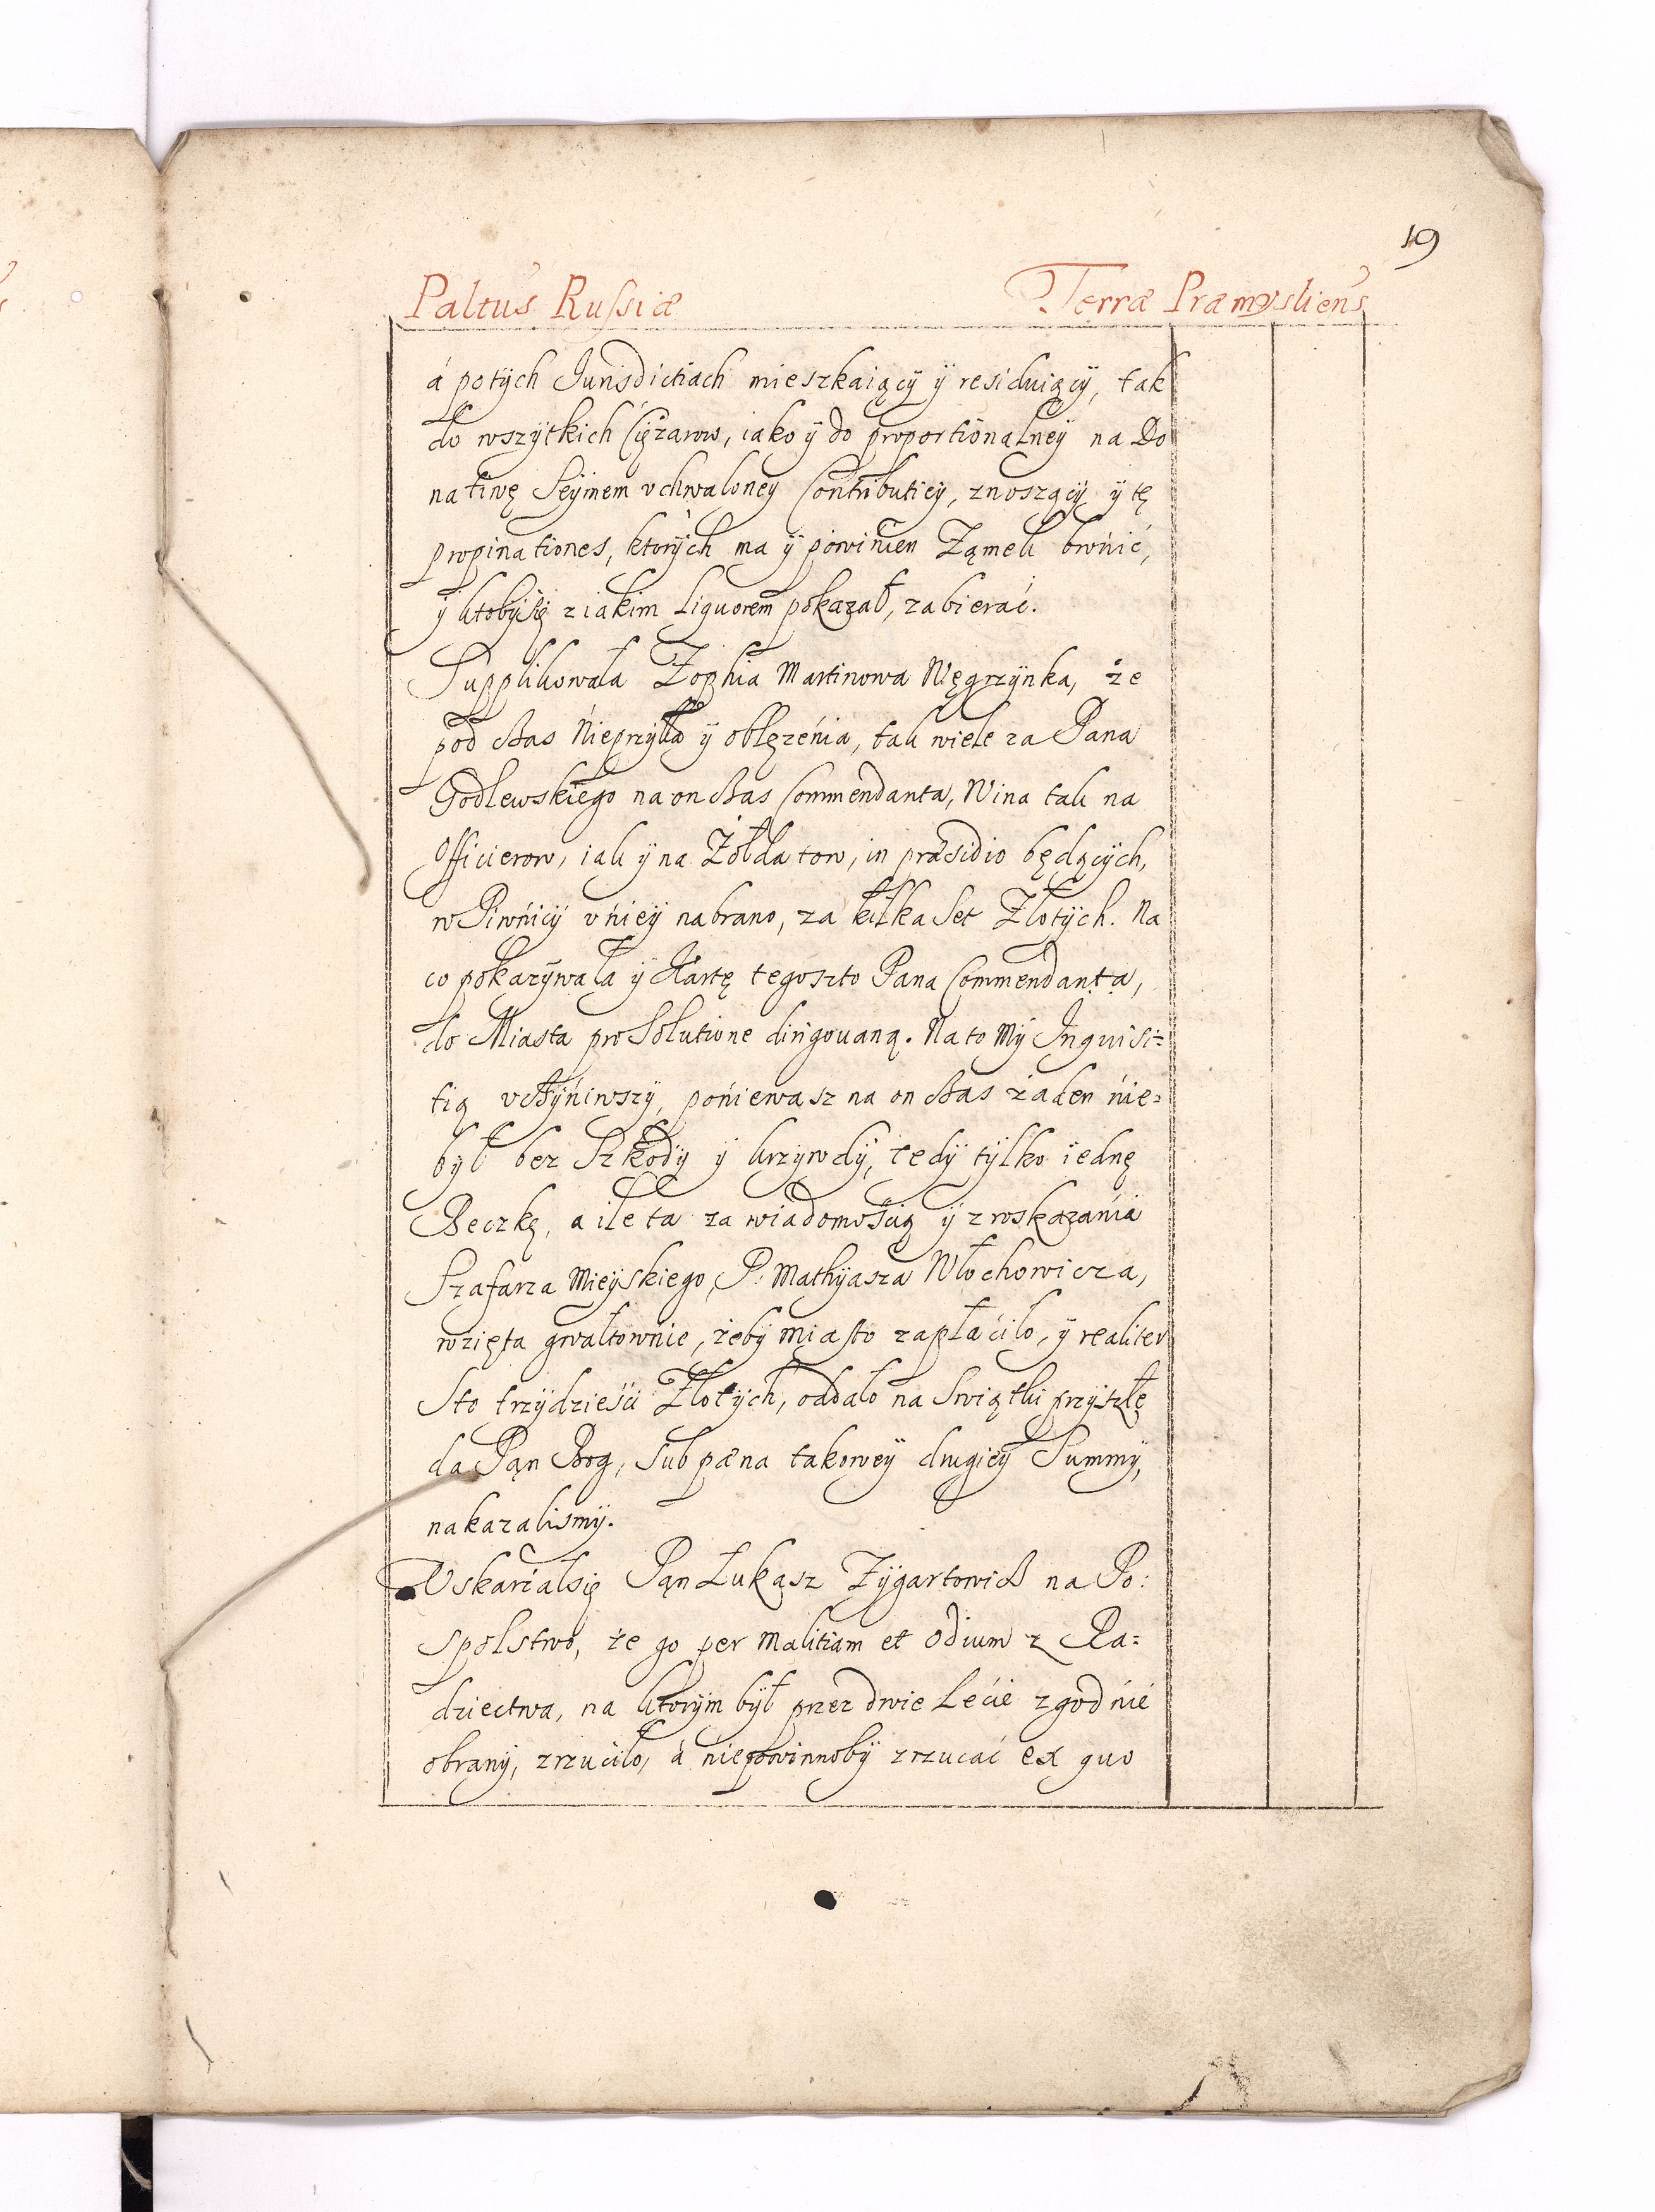 19
Paltus Russiæ Terræ Præmysliens
á potÿch Jurisdictiach mieszkaiący ÿ residuiący, tak
do wszÿtkich Ciężarow, iako ÿ do proportionalneÿ na Do
natiwę Seÿmem vchwaloneÿ Contributiey, znoszącÿ ÿ tę
propinationes, ktorÿch ma ÿ powinien Zamek bronić,
ÿ ktobÿsię z iakim Liquorem pokazał, zabierać.
Supplikowała Zophia Martinowa Węgrzÿnka, że
pod czas Nieprzÿla ÿ oblężenia, tak wiele za Pana
Godlewskiego na on czas Commendanta, Wina tak na
Officierow, iak ÿ na Żołdatow, in præsidio będącÿch,
w Piwnicÿ v nieÿ nabrano, za kilka set Złotÿch. Na
co pokazÿwała ÿ Kartę tegoszto Pana Commendanta,
do Miasta pro Solutione dirigouaną. Na to Mÿ Inquisi=
tią vczÿniwszÿ, poniewasz na on czas żaden nie=
bÿł bez Szkodÿ ÿ krzywdÿ, tedÿ tÿlko iednę
Beczkę, a ile ta za wiadomością ÿ z roskazania
Szafarza Mieÿskiego, P: Mathÿasza Włochowicza,
wzięta gwałtownie, żebÿ miasto zapłaciło, ÿ realiter
Sto trzÿdzieści Złotÿch, oddało na Swiątki przÿszłę
da Pąn Bog, sub pæna takoweÿ drugieÿ Summÿ,
nakazalismÿ.
Vskarżałsię Pąn Łukasz Zÿgartowicz na Po:
spolstwo, że go per Malitiam et Odium z Ra=
dziectwa, na ktorÿm bÿł przez dwie Lecie zgodnie
obranÿ, zrzuciło, á niepowinnobÿ zrzucać ex quo